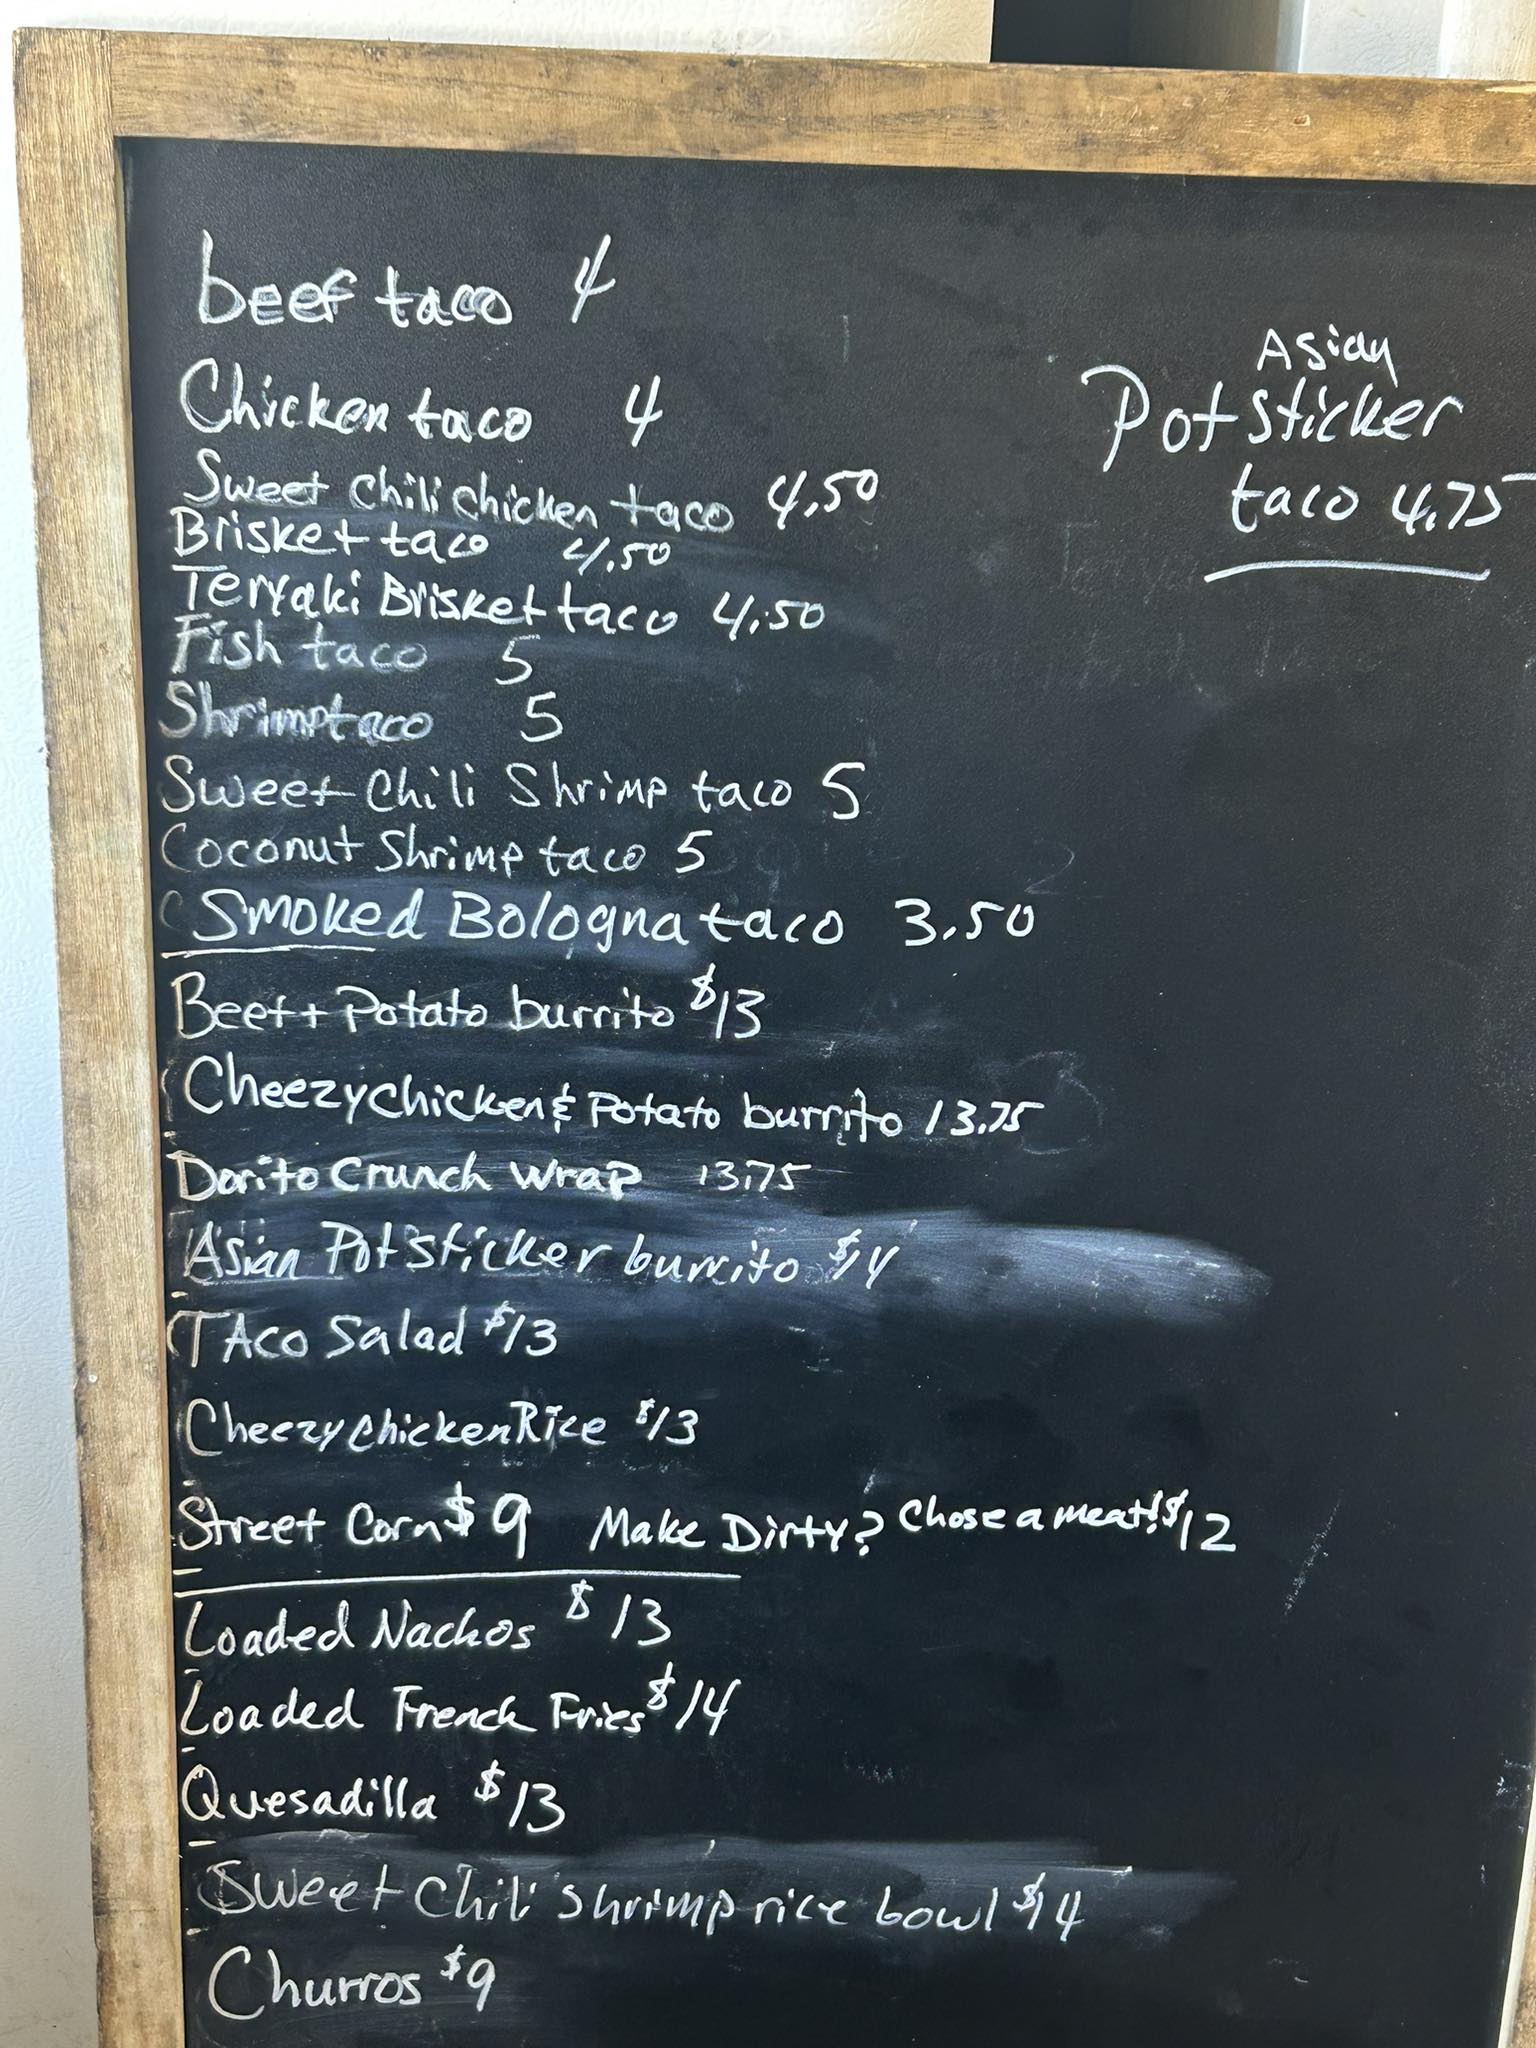 beef taco 4
Chicken taco 4
Sweet chili chicken taco 4.50
Brisket taco 4.50
Teryaki Brisket taco 4.50
Fish taco 5
Shrimp taco 5
Sweet Chili Shrimp taco 5
Coconut Shrimp taco 5
Smoked Bologna taco 3.50
Beef + Potato burrito $13
Cheezy chicken & Potato burrito 13.75
Dorito Crunch Wrap 13.75
Asian Potsticker burrito $14
TAco Salad $13
Cheezy Chicken Rice $13
Street Corn $9 Make Dirty? Chose a meat! $12
Loaded Nachos $13
Loaded French Fries $14
Quesadilla $13
Sweet Chili Shrimp rice bowl $14
Churros $9
Asian
Pot Sticker
taco 4.75